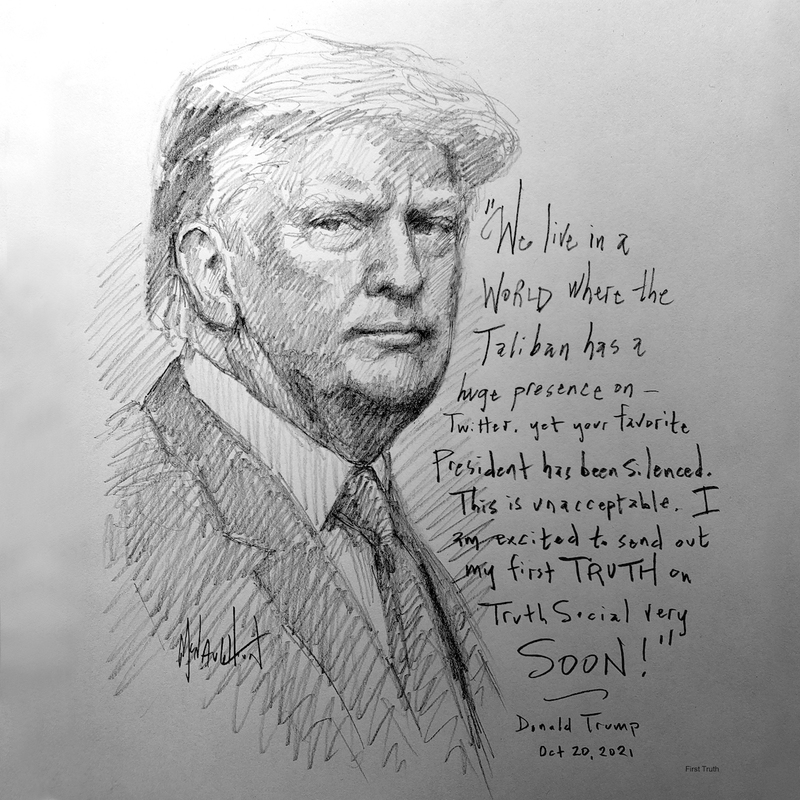 "We live in a
WORLD where the
Taliban has a
huge presence on –
Twitter. yet your favorite
President has been silenced.
This is unacceptable. I
am excited to send out
my first TRUTH on
Truth Social very
SOON!"
Donald Trump
Oct 20, 2021
First Truth